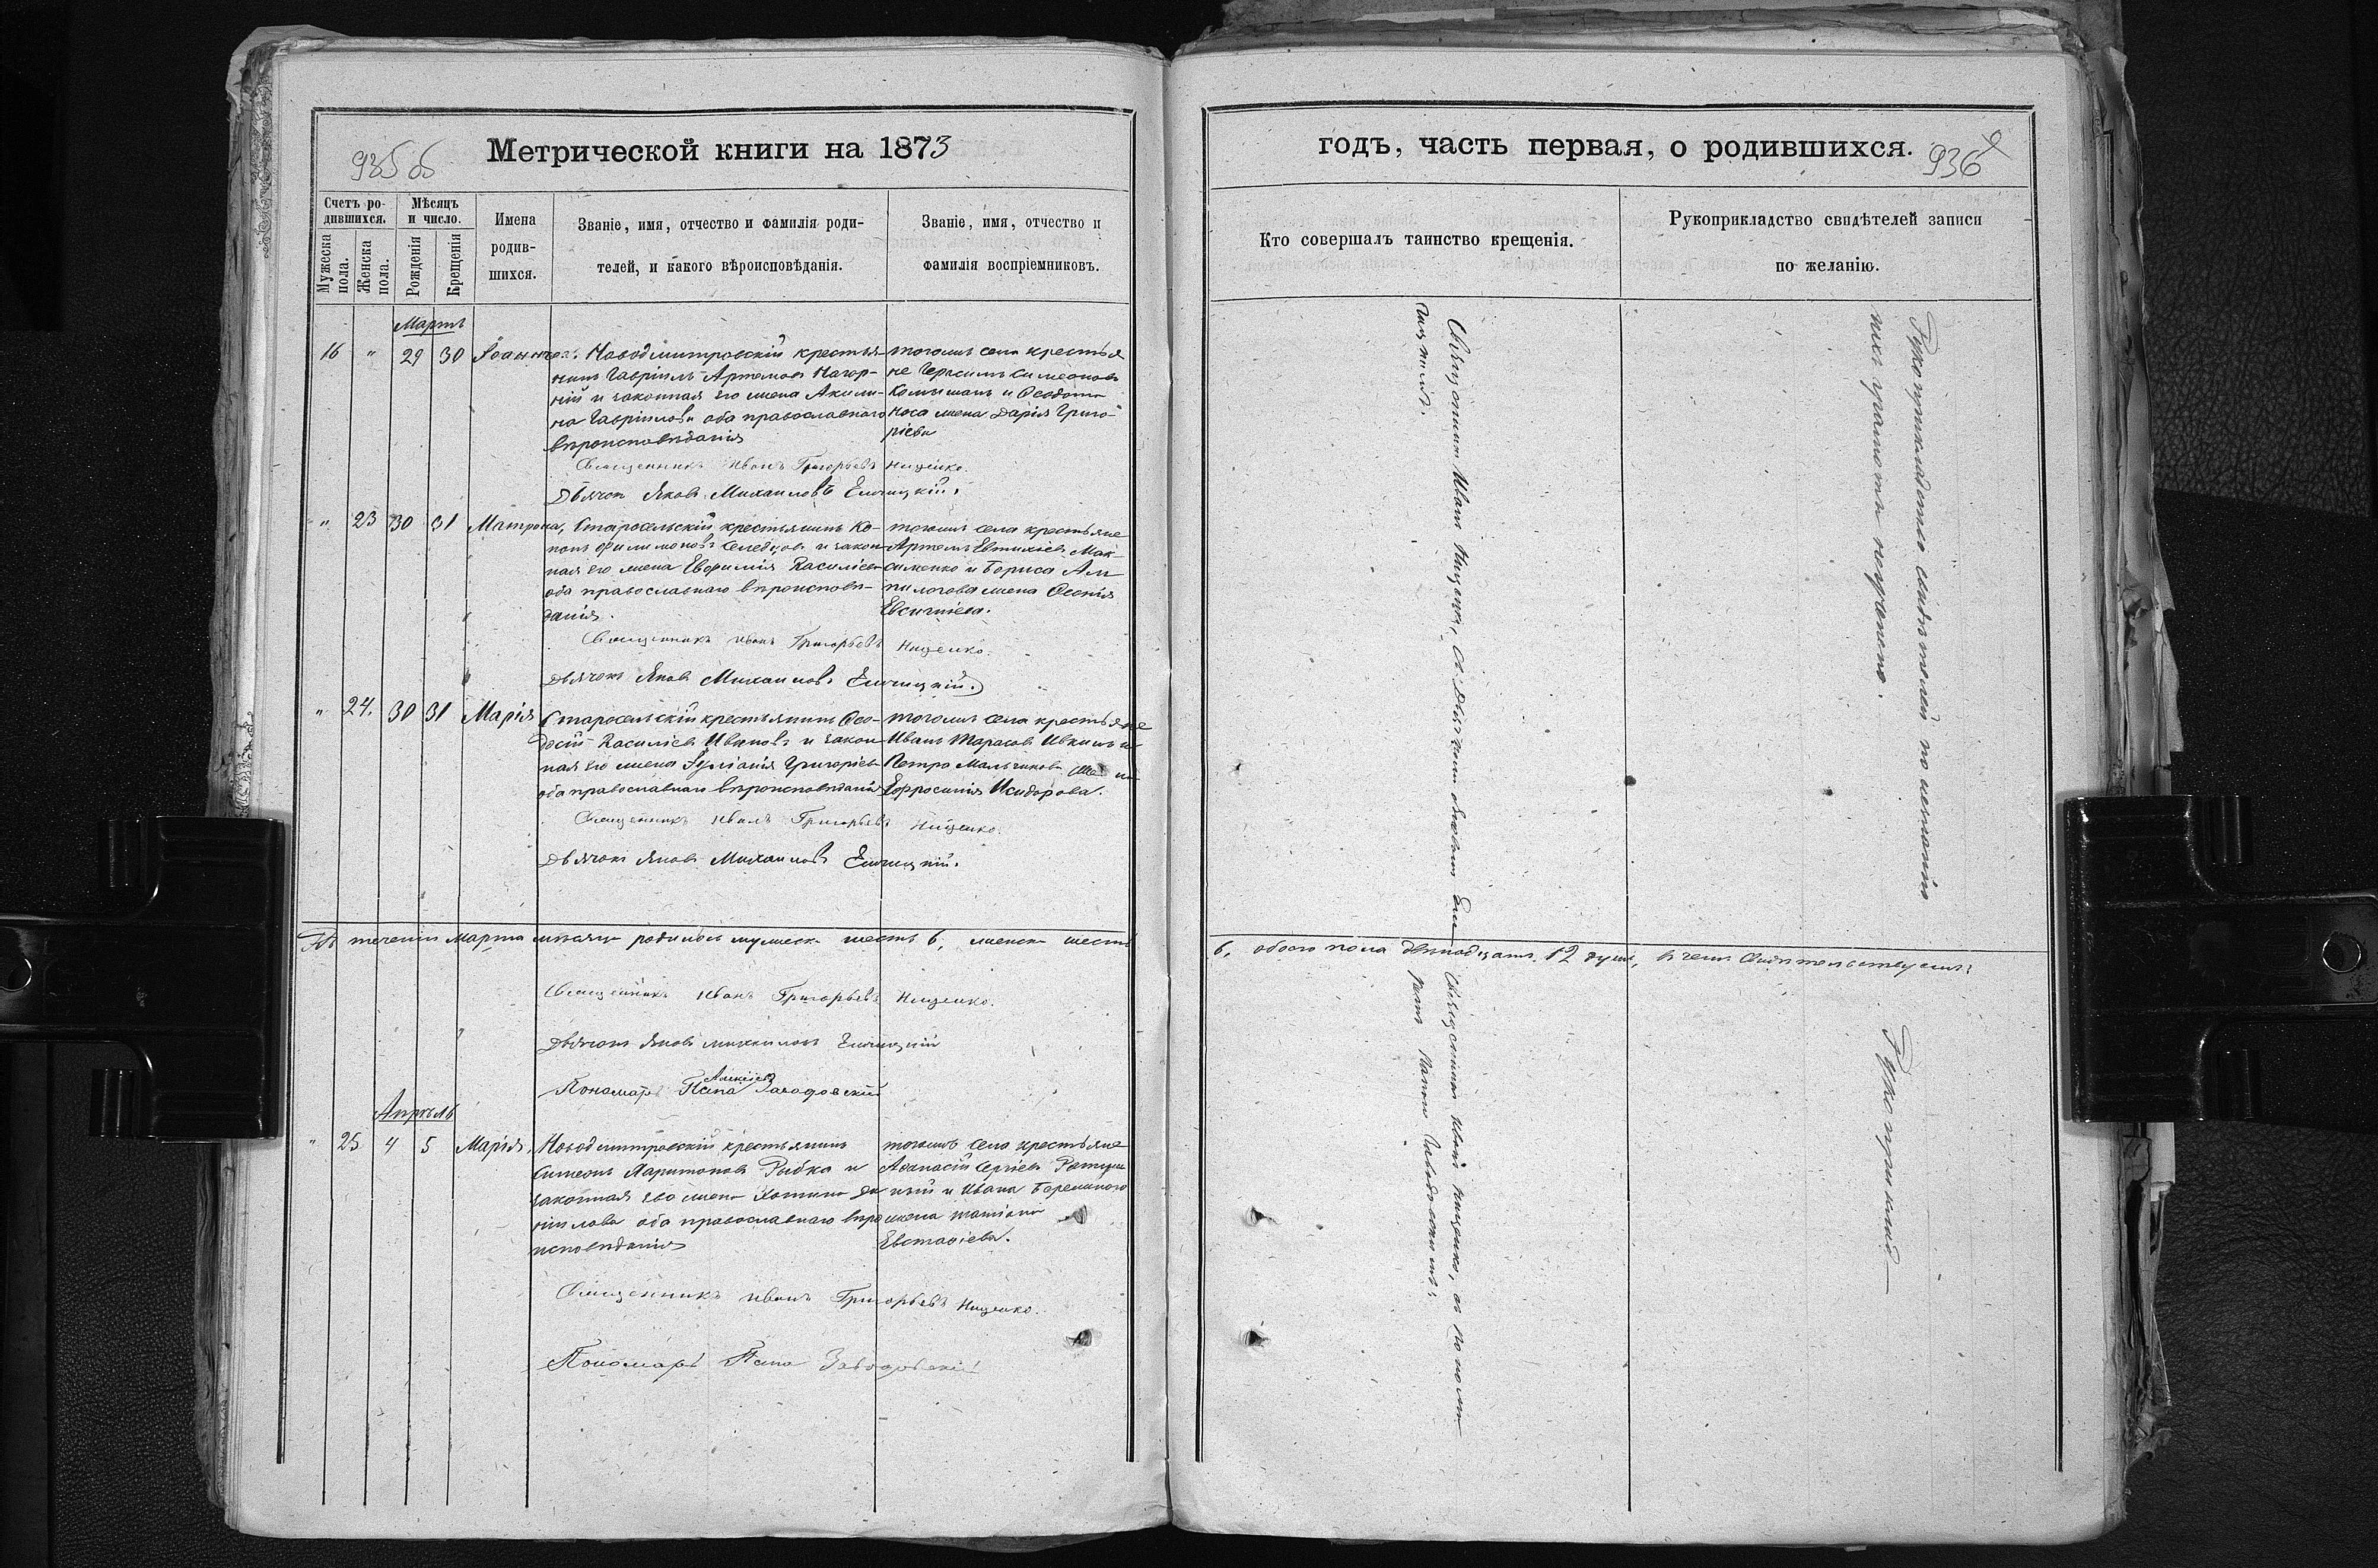 935 об
Метрической книги на 1873
Счетъ ро-
дившихся.
Мѣсяцъ
и число.
Мужеска
пола.
Женска
пола.
Рожденія
Крещенія
Имена
родив-
шихся.
Званіе, имя, отчество и фамилія роди-
телей, и какого вѣроисповѣданія.
Званіе, имя, отчество и
фамилія воспріемниковъ.
Мартъ
16 " 29 30 Іоаннъ
Новодмитровскій крестья-
нинъ Гавріилъ Артемовъ Нагор-
ній и законная его жена Акили-
на Гавріилова оба православнаго
вѣроисповѣданія
тогожъ села крестья
не Герасимъ Симеоновъ
и Ѳеодота
Носа жена Дарія Григо-
ріева
Священникъ Иванъ Григорьевъ Нищенко.
Дьячокъ Яковъ Михаиловъ
" 23 30 31 Матрона,
Старосельскій крестьянинъ Ко-
нонъ Филимоновъ и закон
ная его жена Евфимія Василіева
оба православнаго вѣроисповѣ-
данія.
тогожъ села крестьяне
Артемъ Евтихіевъ Мак-
сименко и Бориса Ам
пилогова жена Ѳеонія
Евсигніева.
Священникъ Иванъ Григорьевъ Нищенко.
Дьячокъ Яковъ Михаиловъ
" 24. 30 31 Марія
Старосельскій крестьянинъ Ѳео-
досій Василіевъ Ивановъ и закон
ная его жена Іуліанія Григоріева
оба православнаго вѣроисповѣданія
тогожъ села крестьяне
Иванъ Тарасовъ Ивкинъ и
Петра Мальчикова жена
Евфросинія Исидорова.
Священникъ Иванъ Григорьевъ Нищенко.
Дьячокъ Яковъ Михаиловъ
Въ теченіи Марта мѣсяца родилось мужеска шесть 6, женска шесть
Священникъ Иванъ Григорьевъ Нищенко.
Дьячокъ Яковъ Михаиловъ
Алексіевъ
Пономарь Папа Заводовскій
Апрѣль
" 25 4 5 Марія,
Новодмитровскій крестьянинъ
Симеонъ Харитоновъ Рыбка и
законная его жена Хотина Да
ніилова оба православнаго вѣро
исповѣданія
тогожъ села крестьяне
Аѳанасій Сергіевъ
и Ивана
жена Татіана
Евстафіева.
Священникъ Иванъ Григорьевъ Нищенко.
Пономарь Папа Заводовскій
годъ, часть первая, о родившихся.
936
Кто совершалъ таинство крещенія.
Рукоприкладство свидѣтелей записи
по желанію.
Священникъ Иванъ Нищенко, съ дьячкомъ Яковомъ
Рукоприкладство свидѣтелей по незнанію
ихъ грамотѣ неучинено.
6, обоего пола двѣнадцать 12 душъ, в чемъ свидѣтельствуемъ:
Священникъ Иванъ Нищенко, съ поно-
Папою Заводовскимъ.
Рукоприклад—